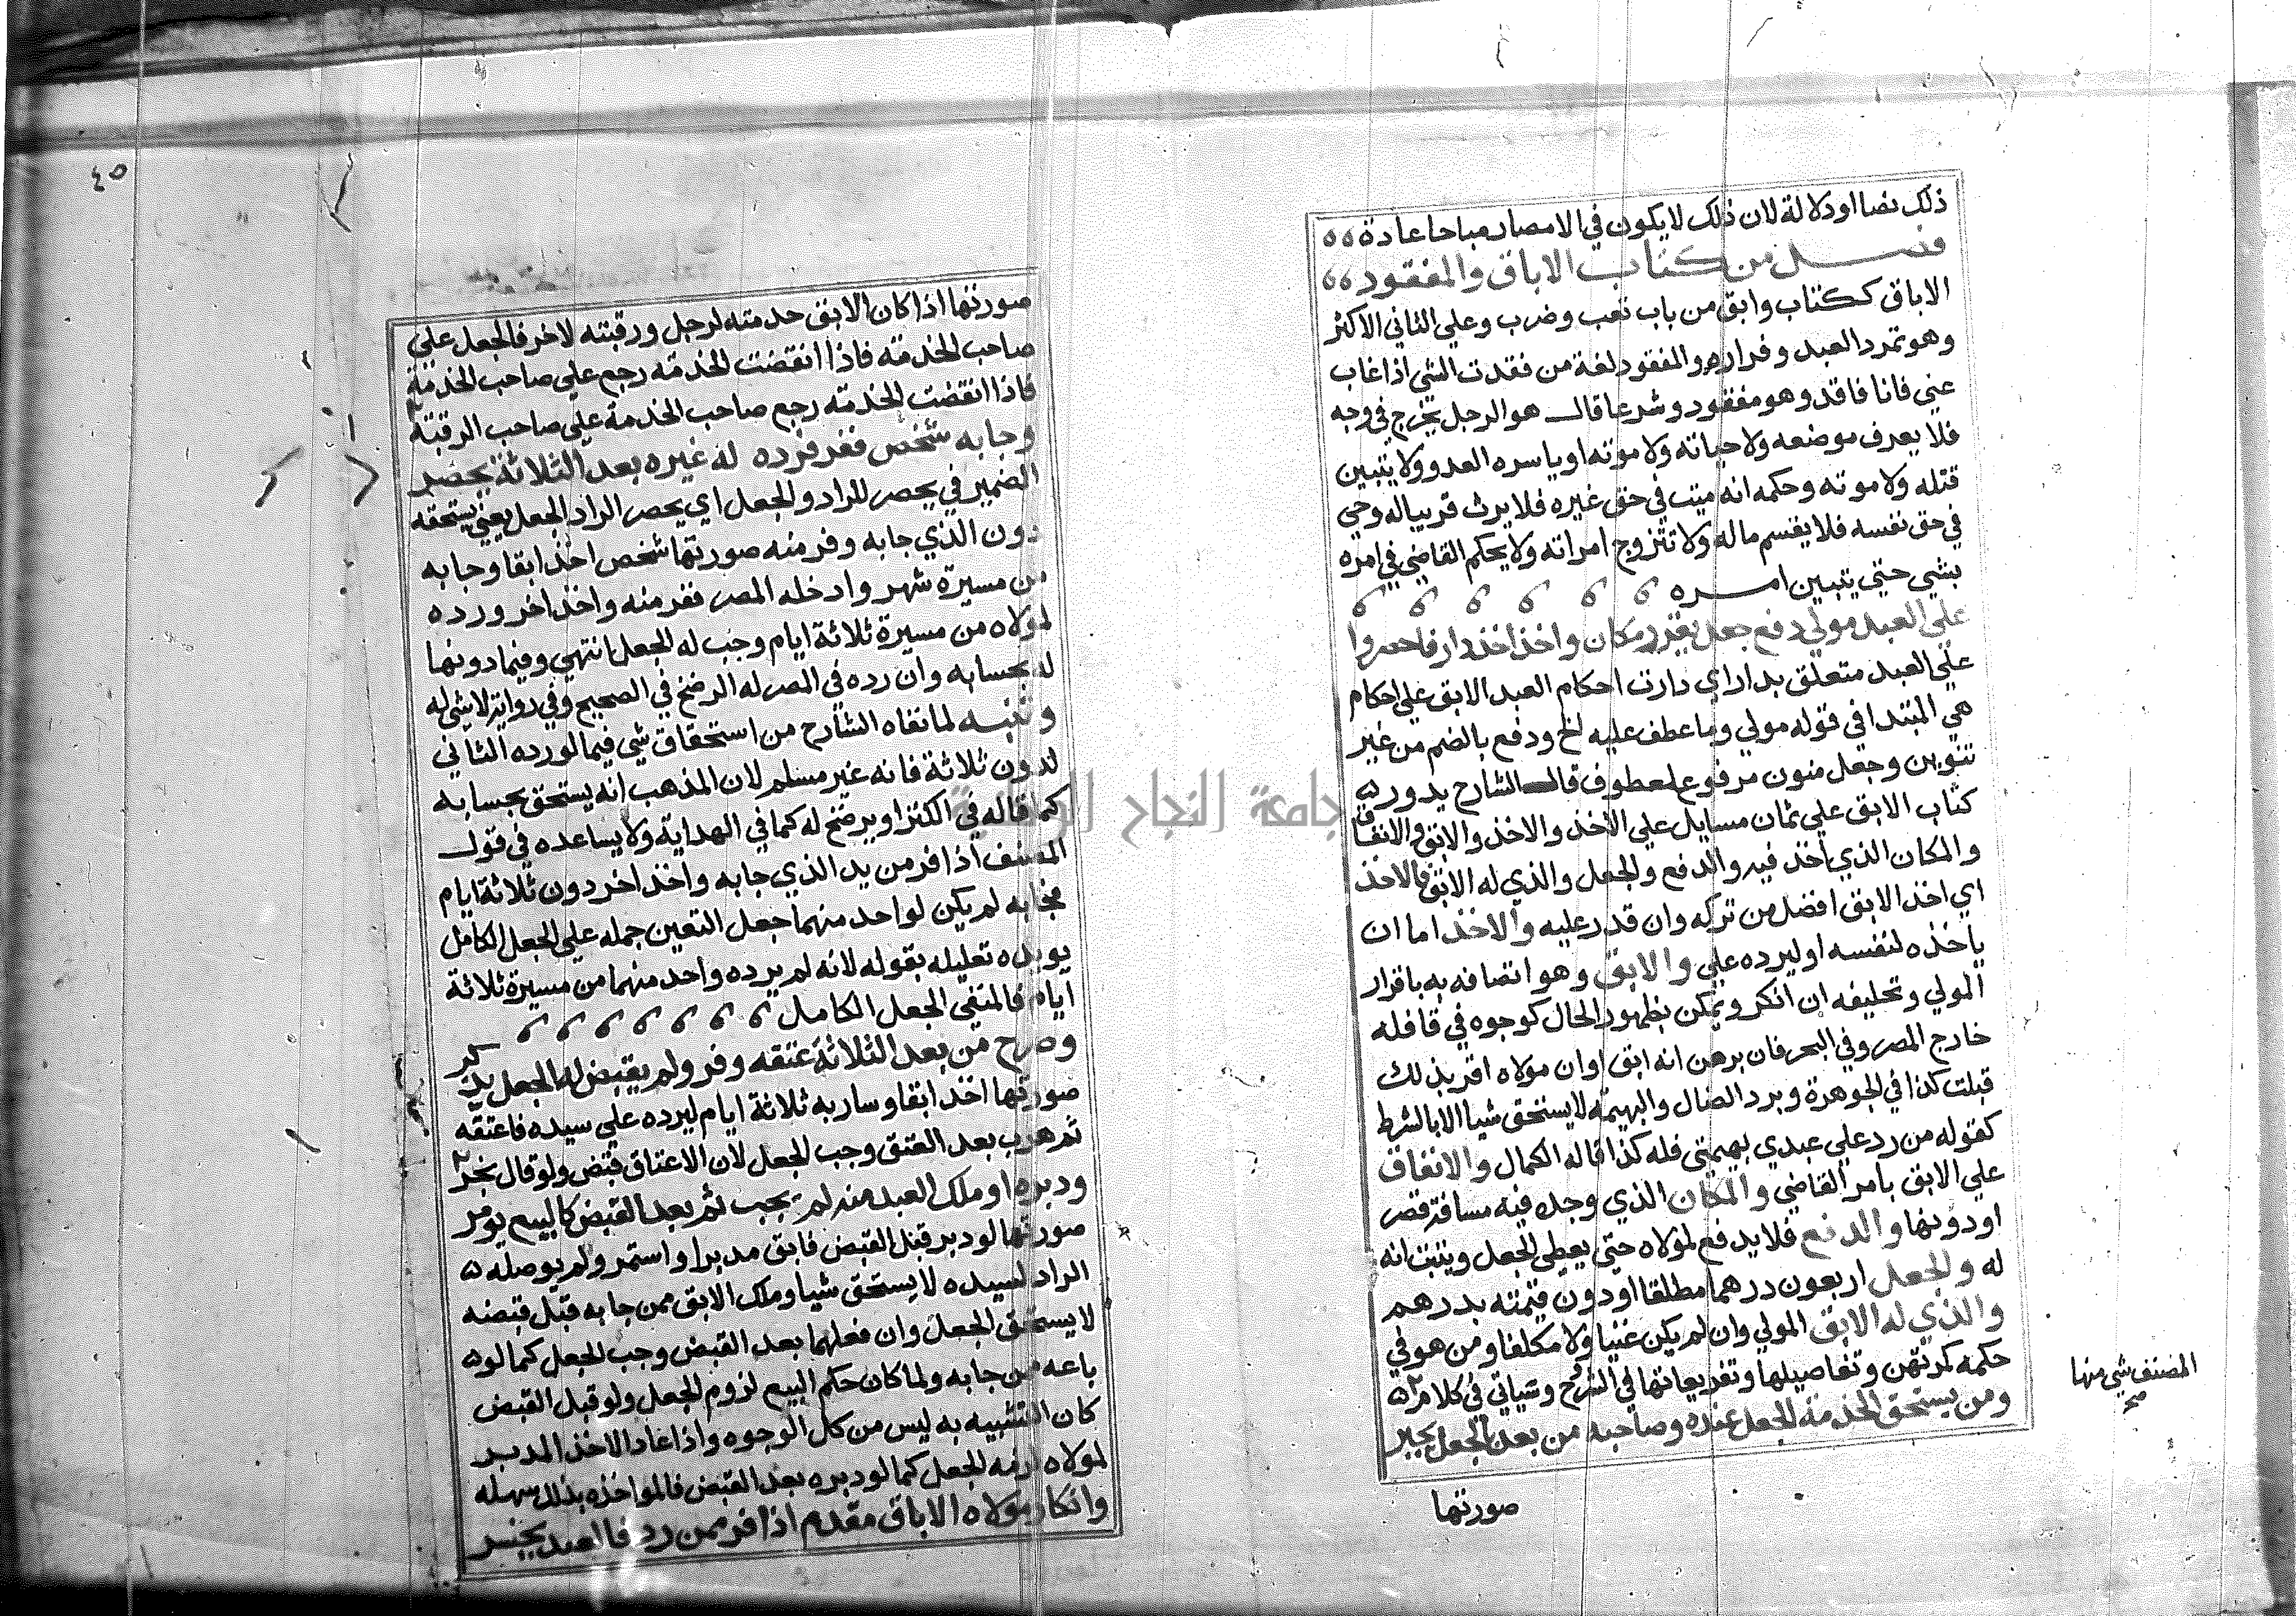 ذلك نصا او دلالة لان ذلك لا يكون في الامصار مباحا عادة
فصل من كتاب الاباق والمفقود
الاباق ككتاب وابق من باب تعب وضرب وعلي الثاني الاكثر
وهو تمرد العبد وفراره والمفقود لغة من فقدت الشي اذا غاب
عني فانا فاقد وهو مفقود وشرعا قال هو الرجل يخرج في وجه
فلا يعرف موضعه ولا حياته ولا موته او ياسره العدو ولا يتبين
قتله ولا موته وحكمه انه ميت في حق غيره فلا يرث قريبا له وحي
في حق نفسه فلا يقسم ماله ولا تتزوج امراته ولا يحكم القاضي في امره
بشي حتي يتبين امره
علي العبد مولي دفع جعل يقرر مكان واخذ اخذ دار فاحصروا
علي العبد متعلق بدار اي دارت احكام العبد الابق علي احكام
هي المبتدا في قوله مولي وما عطف عليه الخ ودفع بالضم من غير
تنوين وجعل منون مرفوع لمعطوف قال الشارح يدور
كتاب الابق علي ثمان مسايل علي الاخذ والاخذ والابق والانفاق
والمكان الذي اخذ فيه والدفع والجعل والذي له الابق فالاخذ
اي اخذ الابق افضل من تركه وان قدر عليه والاخذ اما ان
ياخذه لنفسه او ليرده علي والابق وهو اتصافه به باقرار
المولي وتحليفه ان انكر ويمكن بظهور الحال كوجوه في قافله
خارج المصر وفي البحر فان برهن انه ابق او ان مولاه اقر بذلك
قبلت كذا في الجوهرة وبرد الضال والبهيمة لا يستحق شيا الا بالشرط
كقوله من رد علي عبدي بهيمتي فله كذا قاله الكمال والانفاق
علي الابق بامر القاضي والمكان الذي وجده فيه مسافة قصر
او دونها والدفع فلا يدفع لمولاه حتي يعطي الجعل ويثبت انه
له والجعل اربعون درهما مطلقا او دون قيمته بدرهم
والذي له الابق المولي وان لم يكن غنيا ولا مكلفا ومن هو في
حكمه كمرتهن وتفاصيلها وتفريعاتها في الشرح وسياتي في كلام
المصنف شي منها
صح
ومن يستحق الخدمة الجعل عنده وصاحبه من بعد بالجعل يجبر
صورتها
٤٥
صورتها اذا كان الابق خدمته لرجل ورقبته لاخر فالجعل علي
صاحب الخدمة فاذا انقضت الخدمة رجع علي صاحب الخدمة
فاذا انقضت الخدمة رجع صاحب الخدمة علي صاحب الرقبة
وجابه شخص ففر فرده له غيره بعد الثلاثة يحصر
الضمير في يحصر للراد والجعل اي يحصر الراد الجعل يعني يستحقه
دون الذي جابه وفر منه صورتها شخص اخذ ابقا وجابه
من مسيرة شهر وادخله المصر ففر منه واخذ اخر ورده
لمولاه من مسيرة ثلاثة ايام وجب له الجعل انتهي وفيما دونها
له بحسابه وان رده في المصر له الرضخ في الصحيح وفي رواية لا شي له
وتنبه لما نفاه الشارح من استحقاق شي فيما لو رده الثاني
لدون ثلاثة فانه غير مسلم لان المذهب انه يستحق بحسابه
كما قاله في الكنز او يرضخ له كما في الهداية ولا يساعده في قول
المصنف اذا فر من يد الذي جابه واخذ اخر دون ثلاثة ايام
فجابه لم يكن لواحد منهما جعل التعين جمله علي الجعل الكامل
يويده تعليله بقوله لانه لم يرده واحد منهما من مسيرة ثلاثة
ايام فالمنفي الجعل الكامل
وصرح من بعد الثلاثة عتقه وفر ولم يقبض له الجعل يذكر
صورتها اخذ ابقا وسار به ثلاثة ايام ليرده علي سيده فاعتقه
ثم هرب بعد العتق وجب الجعل لان الاعتاق قبض ولو قال
ودبره او ملك العبد منه لم يجب ثم بعد القبض كالبيع يومر
صورتها لو دبر قبل القبض فابق مدبرا واستمر ولم يوصله
الراد لسيده لا يستحق شيا وملك الابق ممن جابه قبل قبضه
لا يستحق الجعل وان فعلهما بعد القبض وجب الجعل كما لو
باعه من جابه ولما كان حكم البيع لزوم الجعل ولو قبل القبض
كان التشبيه به ليس من كل الوجوه واذا عاد الاخذ المدبر
لمولاه لزمه الجعل كما لو دبره بعد القبض فالمواخذه بذلك سهله
وانكار مولاه الاباق مقدم اذا فر ممن رد فالعبد يخسر
جامعة النجاح الوطنية